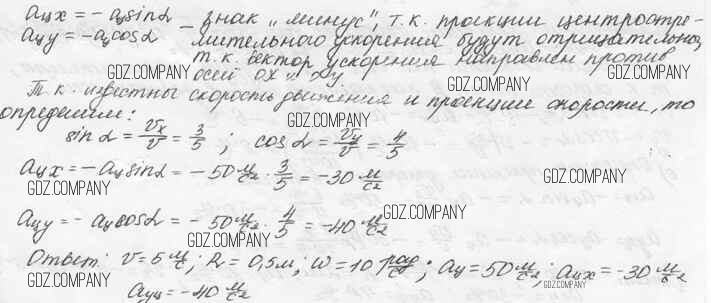 aцx = -aцsinα – знак „минус", т.к. проекции центростре-
aцy = -aцcosα мительного ускорения будут отрицательны,
т.к. вектор ускорения направлен против
GDZ.COMPANY GDZ.COMPANY GDZ.COMPANY
осей ox и oy
Т.к. известны скорость движения и проекции скорости, то
определим: GDZ.COMPANY
sinα = Vx/V = 3/5; cosα = Vy/V = 4/5
aцx = -aцsinα = -50 м/с² · 3/5 = -30 м/с² GDZ.COMPANY
GDZ.COMPANY
aцy = -aцcosα = -50 м/с² · 4/5 = -40 м/с² GDZ.COMPANY
GDZ.COMPANY
Ответ: V = 5 м/с; R = 0,5м; ω = 10 рад/с; aц = 50 м/с²; aцx = -30 м/с²
GDZ.COMPANY GDZ.COMPANY
aцy = -40 м/с²